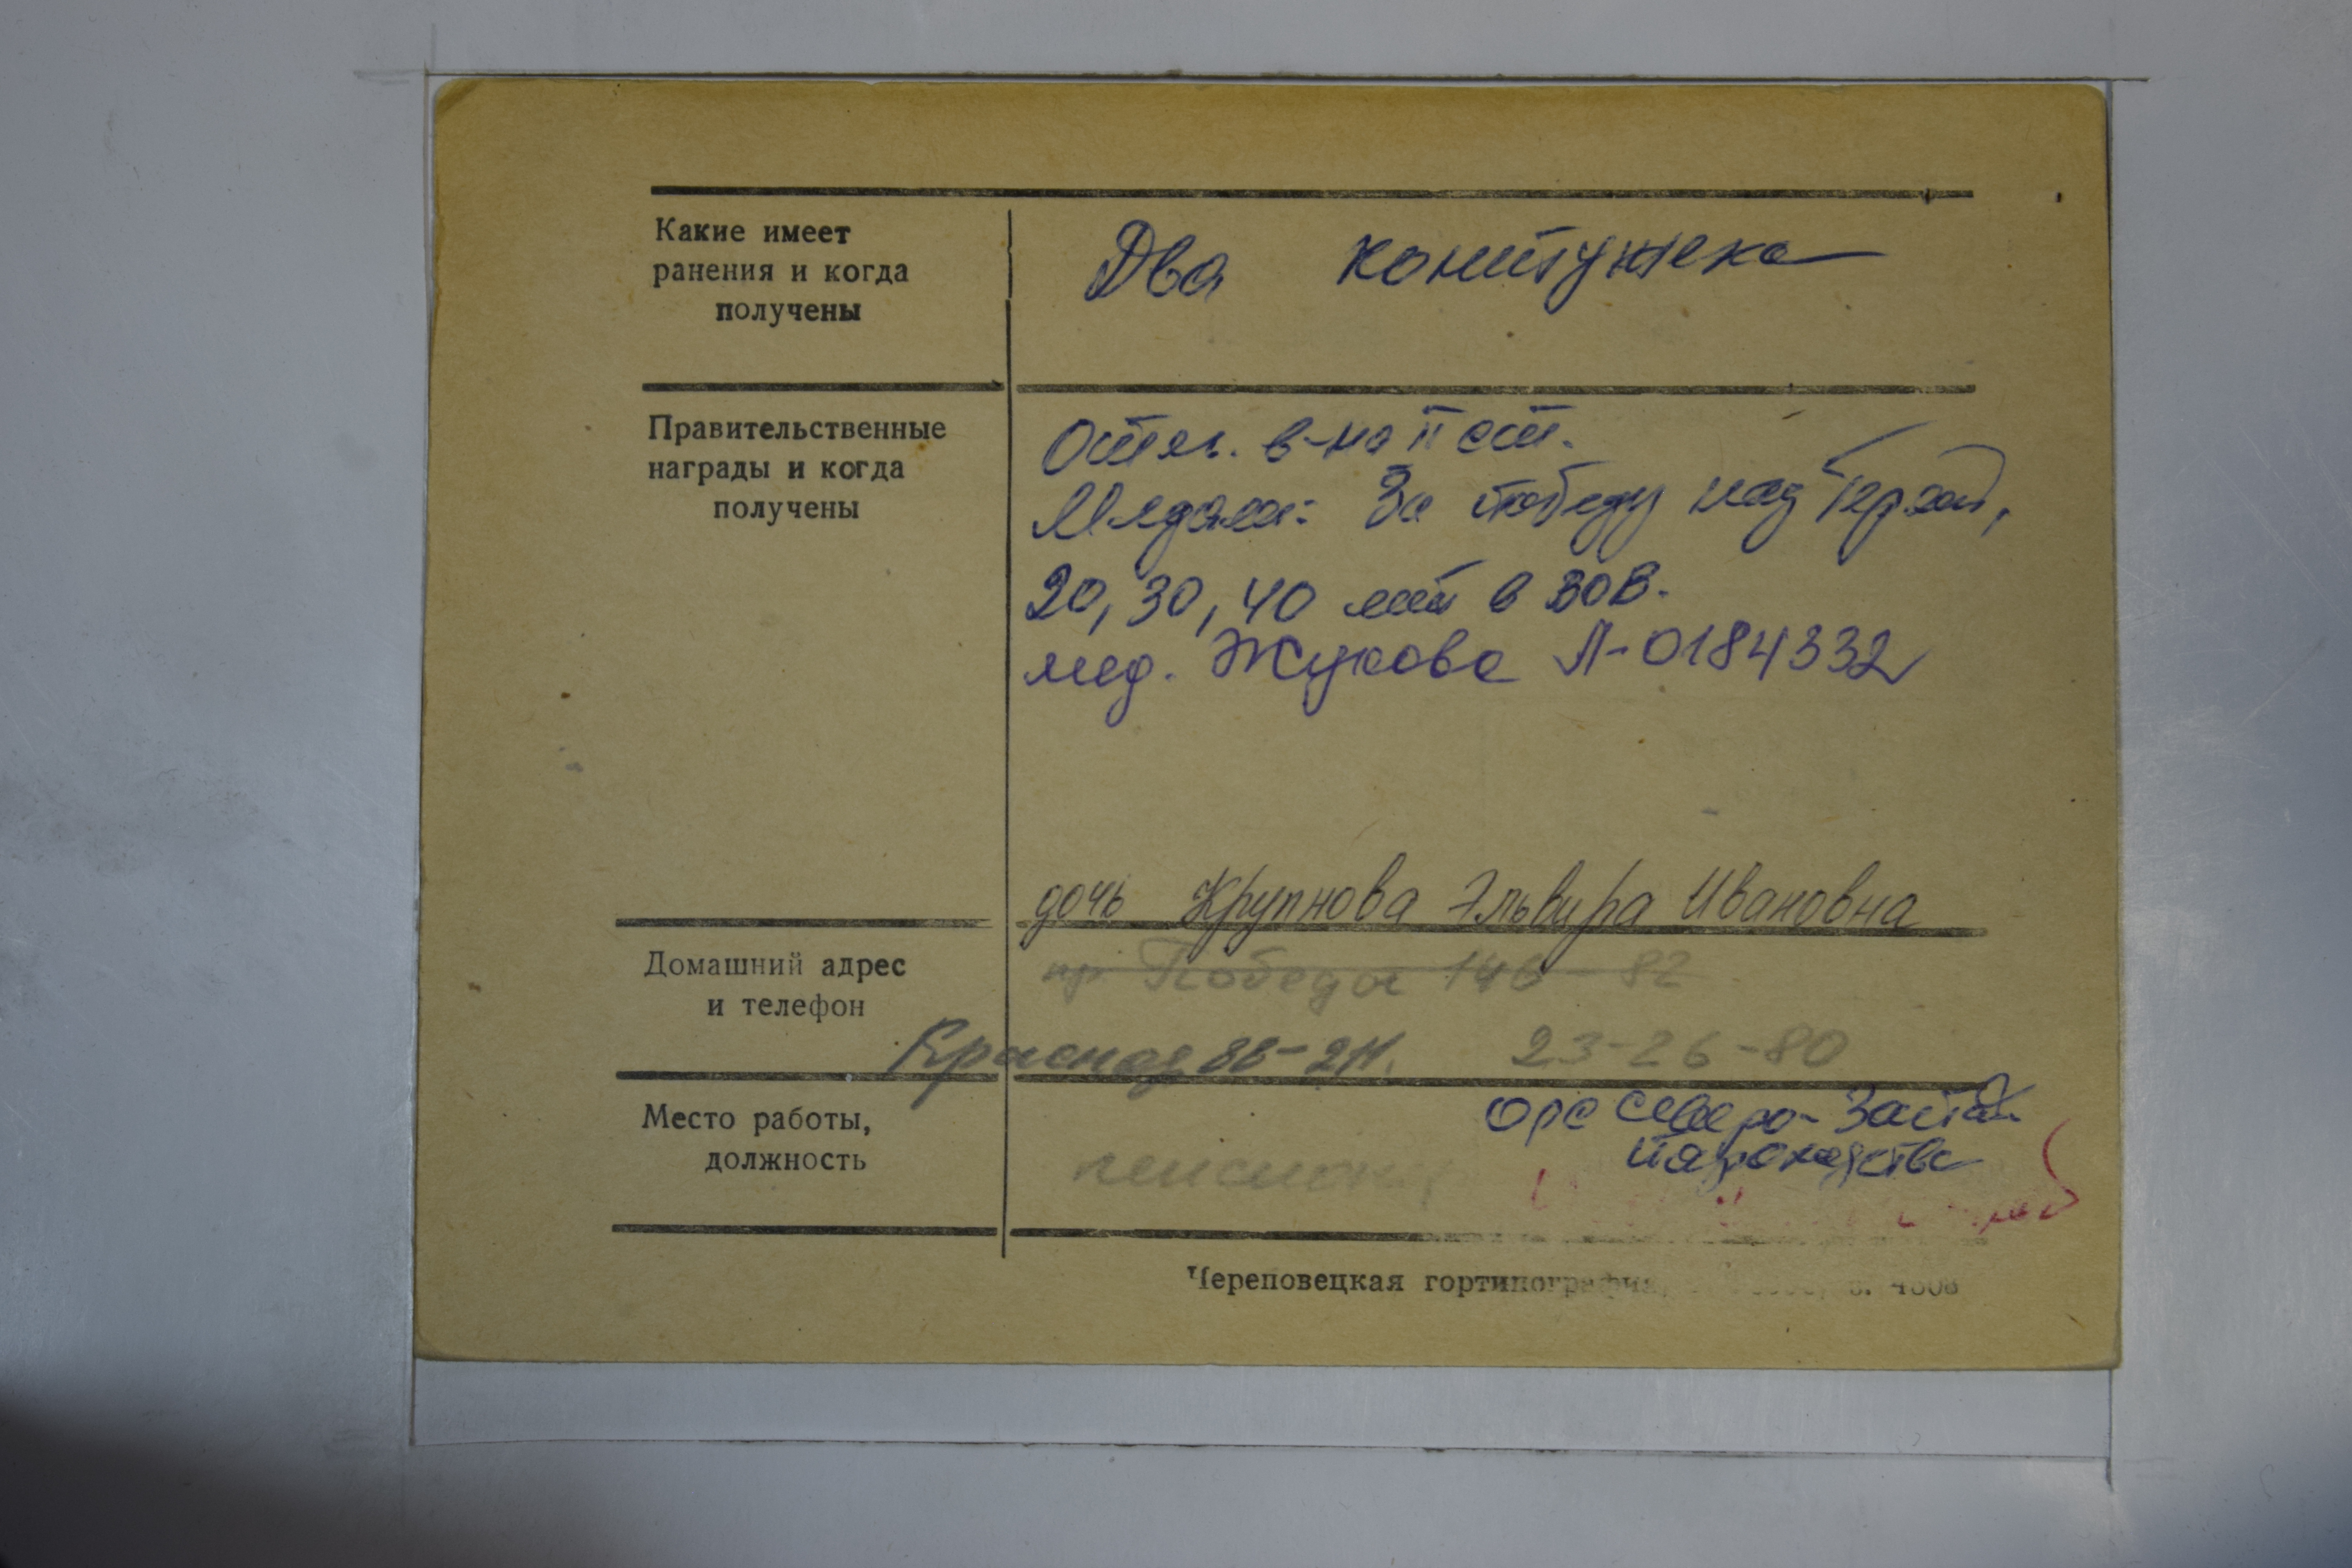 Какие имеет
ранения и когда
получены
Два контужека
Правительственные
награды и когда
получены
Отеч. в-на II ст.
Медали: За победу над Герман,
20, 30, 40 лет в ВОВ.
мед. Жукова Л-0184332
дочь Крупнова Эльвира Ивановна
Домашний адрес
и телефон
пр Победы 146-82
Красная 8 23-26-80
Место работы,
должность
орс Северо-Запад.
пароходства
пенсион.
Череповецкая гортипография,